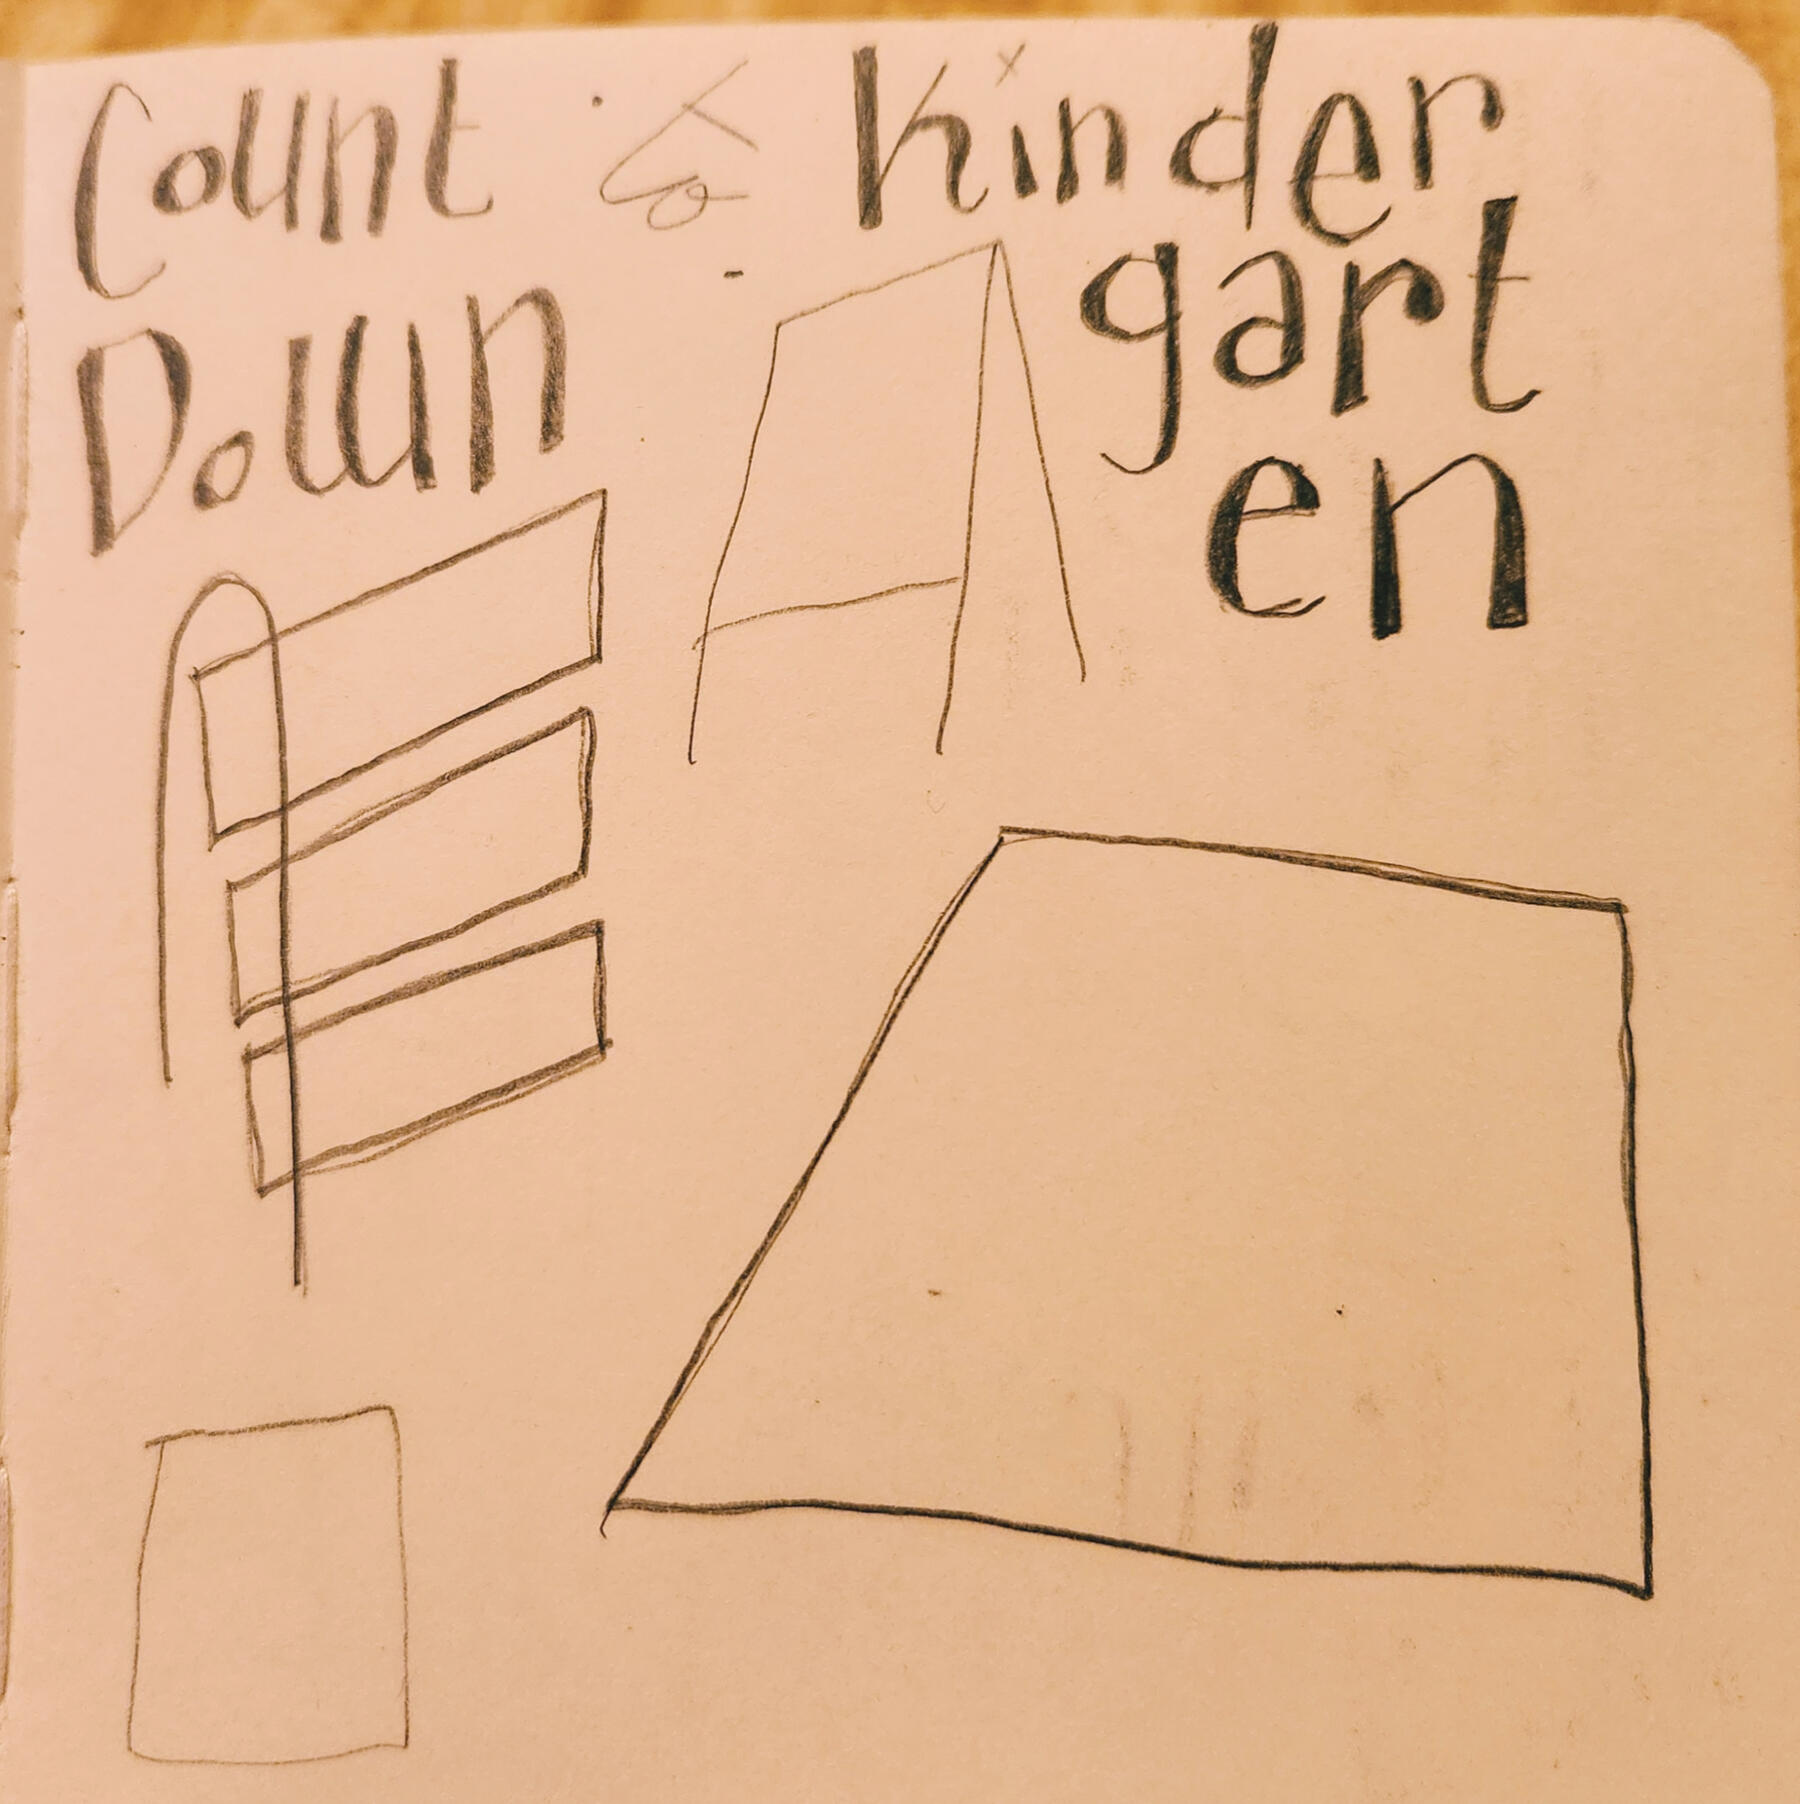 Count to Kinder
Down gart
en